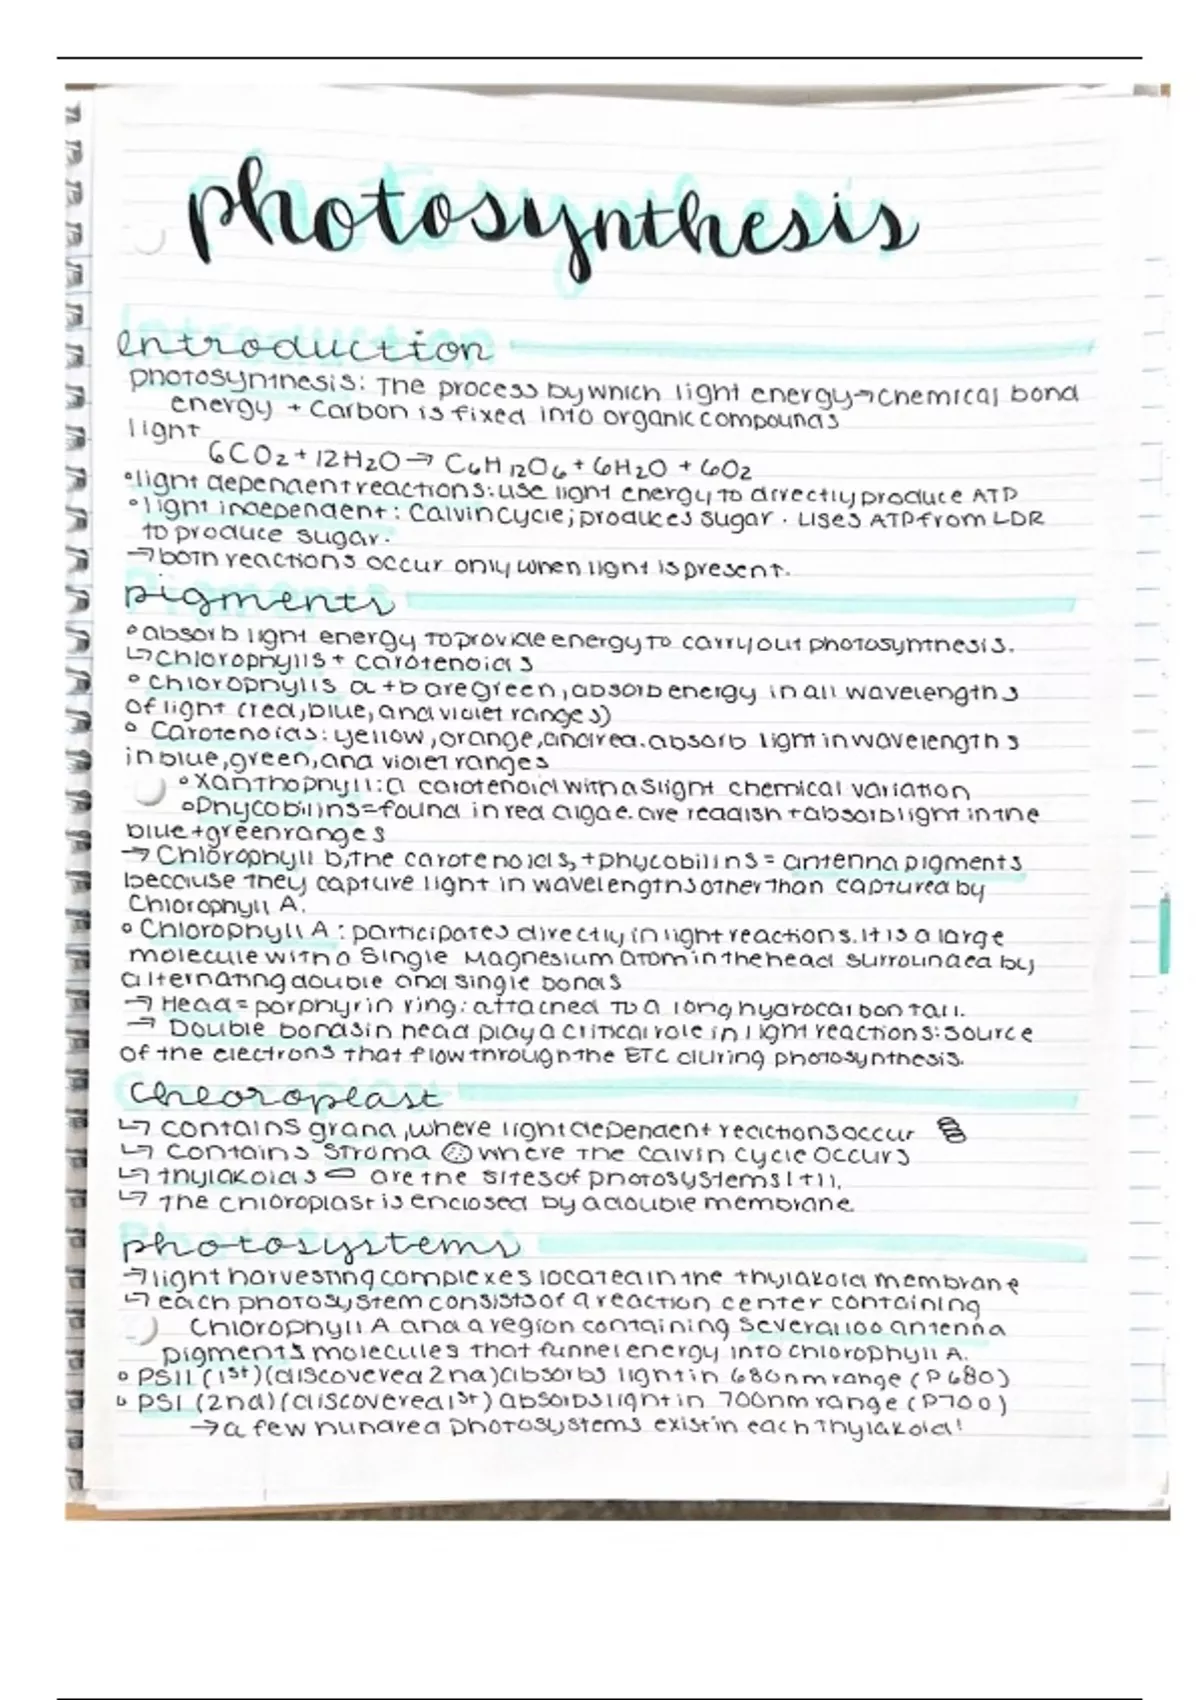 photosynthesis
Introduction
photosynthesis: The process by which light energy→chemical bond
energy + Carbon is fixed into organic compounds
light
6CO2 + 12H2O → C6H12O6 + 6H2O + 6O2
°light dependent reactions: use light energy to directly produce ATP
°light independent: Calvin cycle; produces sugar. Uses ATP from LDR
to produce sugar.
→ both reactions occur only when light is present.
pigments
°absorb light energy to provide energy to carry out photosynthesis.
↳ chlorophylls + carotenoids
° Chlorophylls a + b are green, absorb energy in all wavelengths
of light (red, blue, and violet ranges)
° Carotenoids: yellow, orange, and red. absorb light in wavelengths
in blue, green, and violet ranges
°Xanthophyll: a carotenoid with a slight chemical variation
°Phycobilins = found in red algae. are reddish + absorb light in the
blue + green ranges
→ Chlorophyll b, the carotenoids, + phycobilins = antenna pigments
because they capture light in wavelengths other than captured by
Chlorophyll A.
° Chlorophyll A: participates directly in light reactions. It is a large
molecule with a single Magnesium atom in the head surrounded by
alternating double and single bonds
→ Head = porphyrin ring: attached to a long hydrocarbon tail.
→ Double bonds in head play a critical role in light reactions: source
of the electrons that flow through the ETC during photosynthesis.
Chloroplast
↳ contains grana, where light dependent reactions occur
↳ contains stroma where the calvin cycle occurs
↳ thylakoids are the sites of photosystems I + II.
↳ The chloroplast is enclosed by a double membrane.
photosystems
→ light harvesting complexes located in the thylakoid membrane
↳ each photosystem consists of a reaction center containing
Chlorophyll A and a region containing several 100 antenna
pigments molecules that funnel energy into chlorophyll A.
° PSII (1st) (discovered 2nd) absorbs light in 680nm range (P680)
° PSI (2nd) (discovered 1st) absorbs light in 700nm range (P700)
→ a few hundred photosystems exist in each thylakoid!